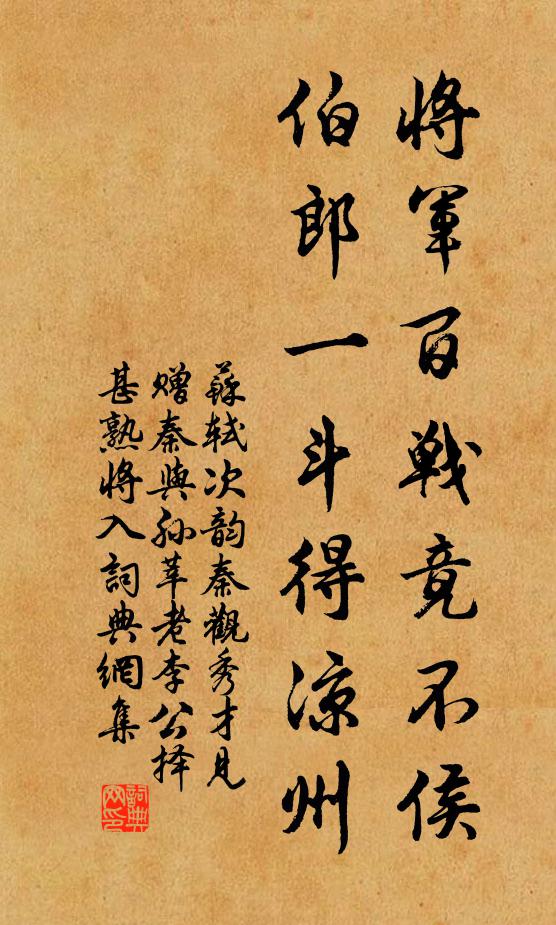 將軍百戰竟不侯
伯郎一斗得涼州
蘇軾次韵秦觀秀才見
赠秦與孙莘老李公择
甚熟將入詞典網集
詞典網印